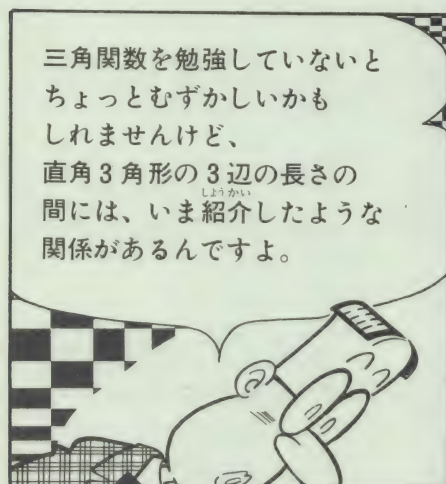 三角関数を勉強していないと
ちょっとむずかしいかも
しれませんけど、
直角3角形の3辺の長さの
しょうかい
間には、いま紹介したような
関係があるんですよ。